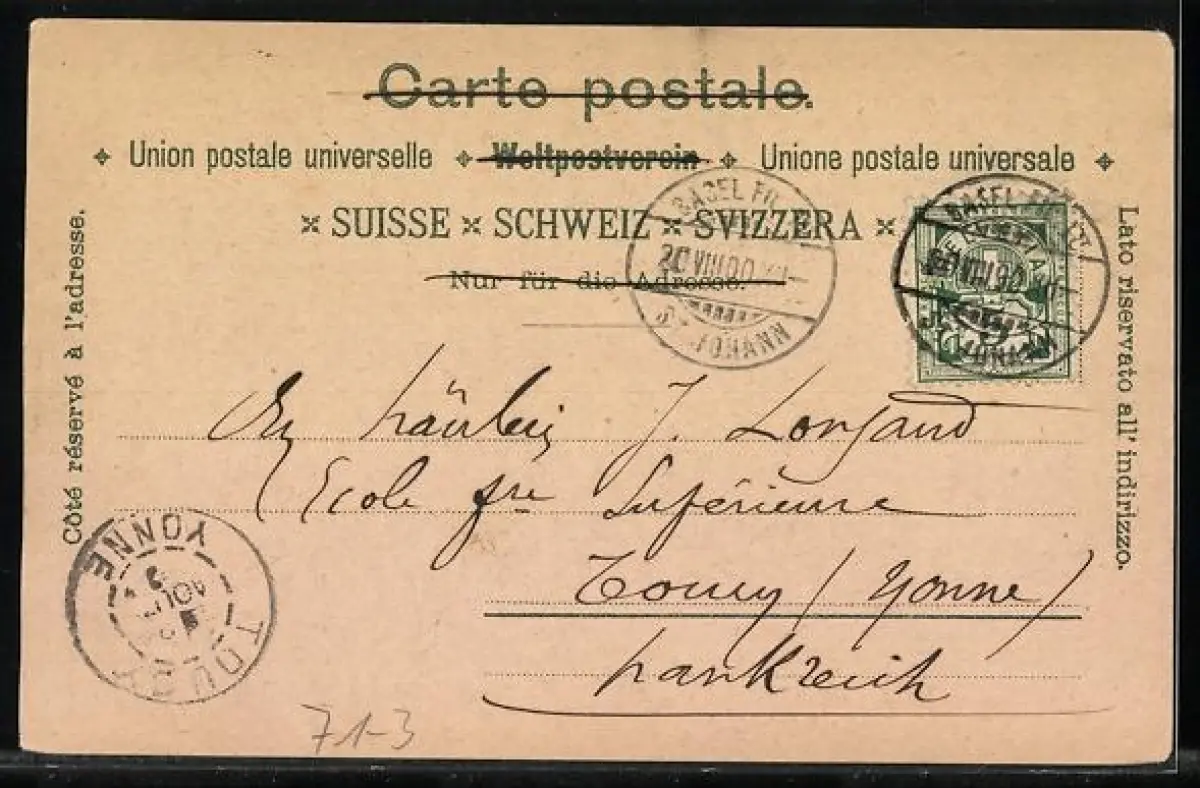 Carte postale.
Union postale universelle Weltpostverein Unione postale universale
SUISSE SCHWEIZ SVIZZERA
Nur für die Adresse.
Côté réservé à l'adresse.
Lato riservato all' indirizzo.
BASEL FIL.
VIII.00
ST JOHANN
BASEL FIL.
VIII.00
ST JOHANN
Fräulein J.
Ecole Supérieure
Toucy (Yonne)
Frankreich
YONNE
AOUT
TOUCY
71-3